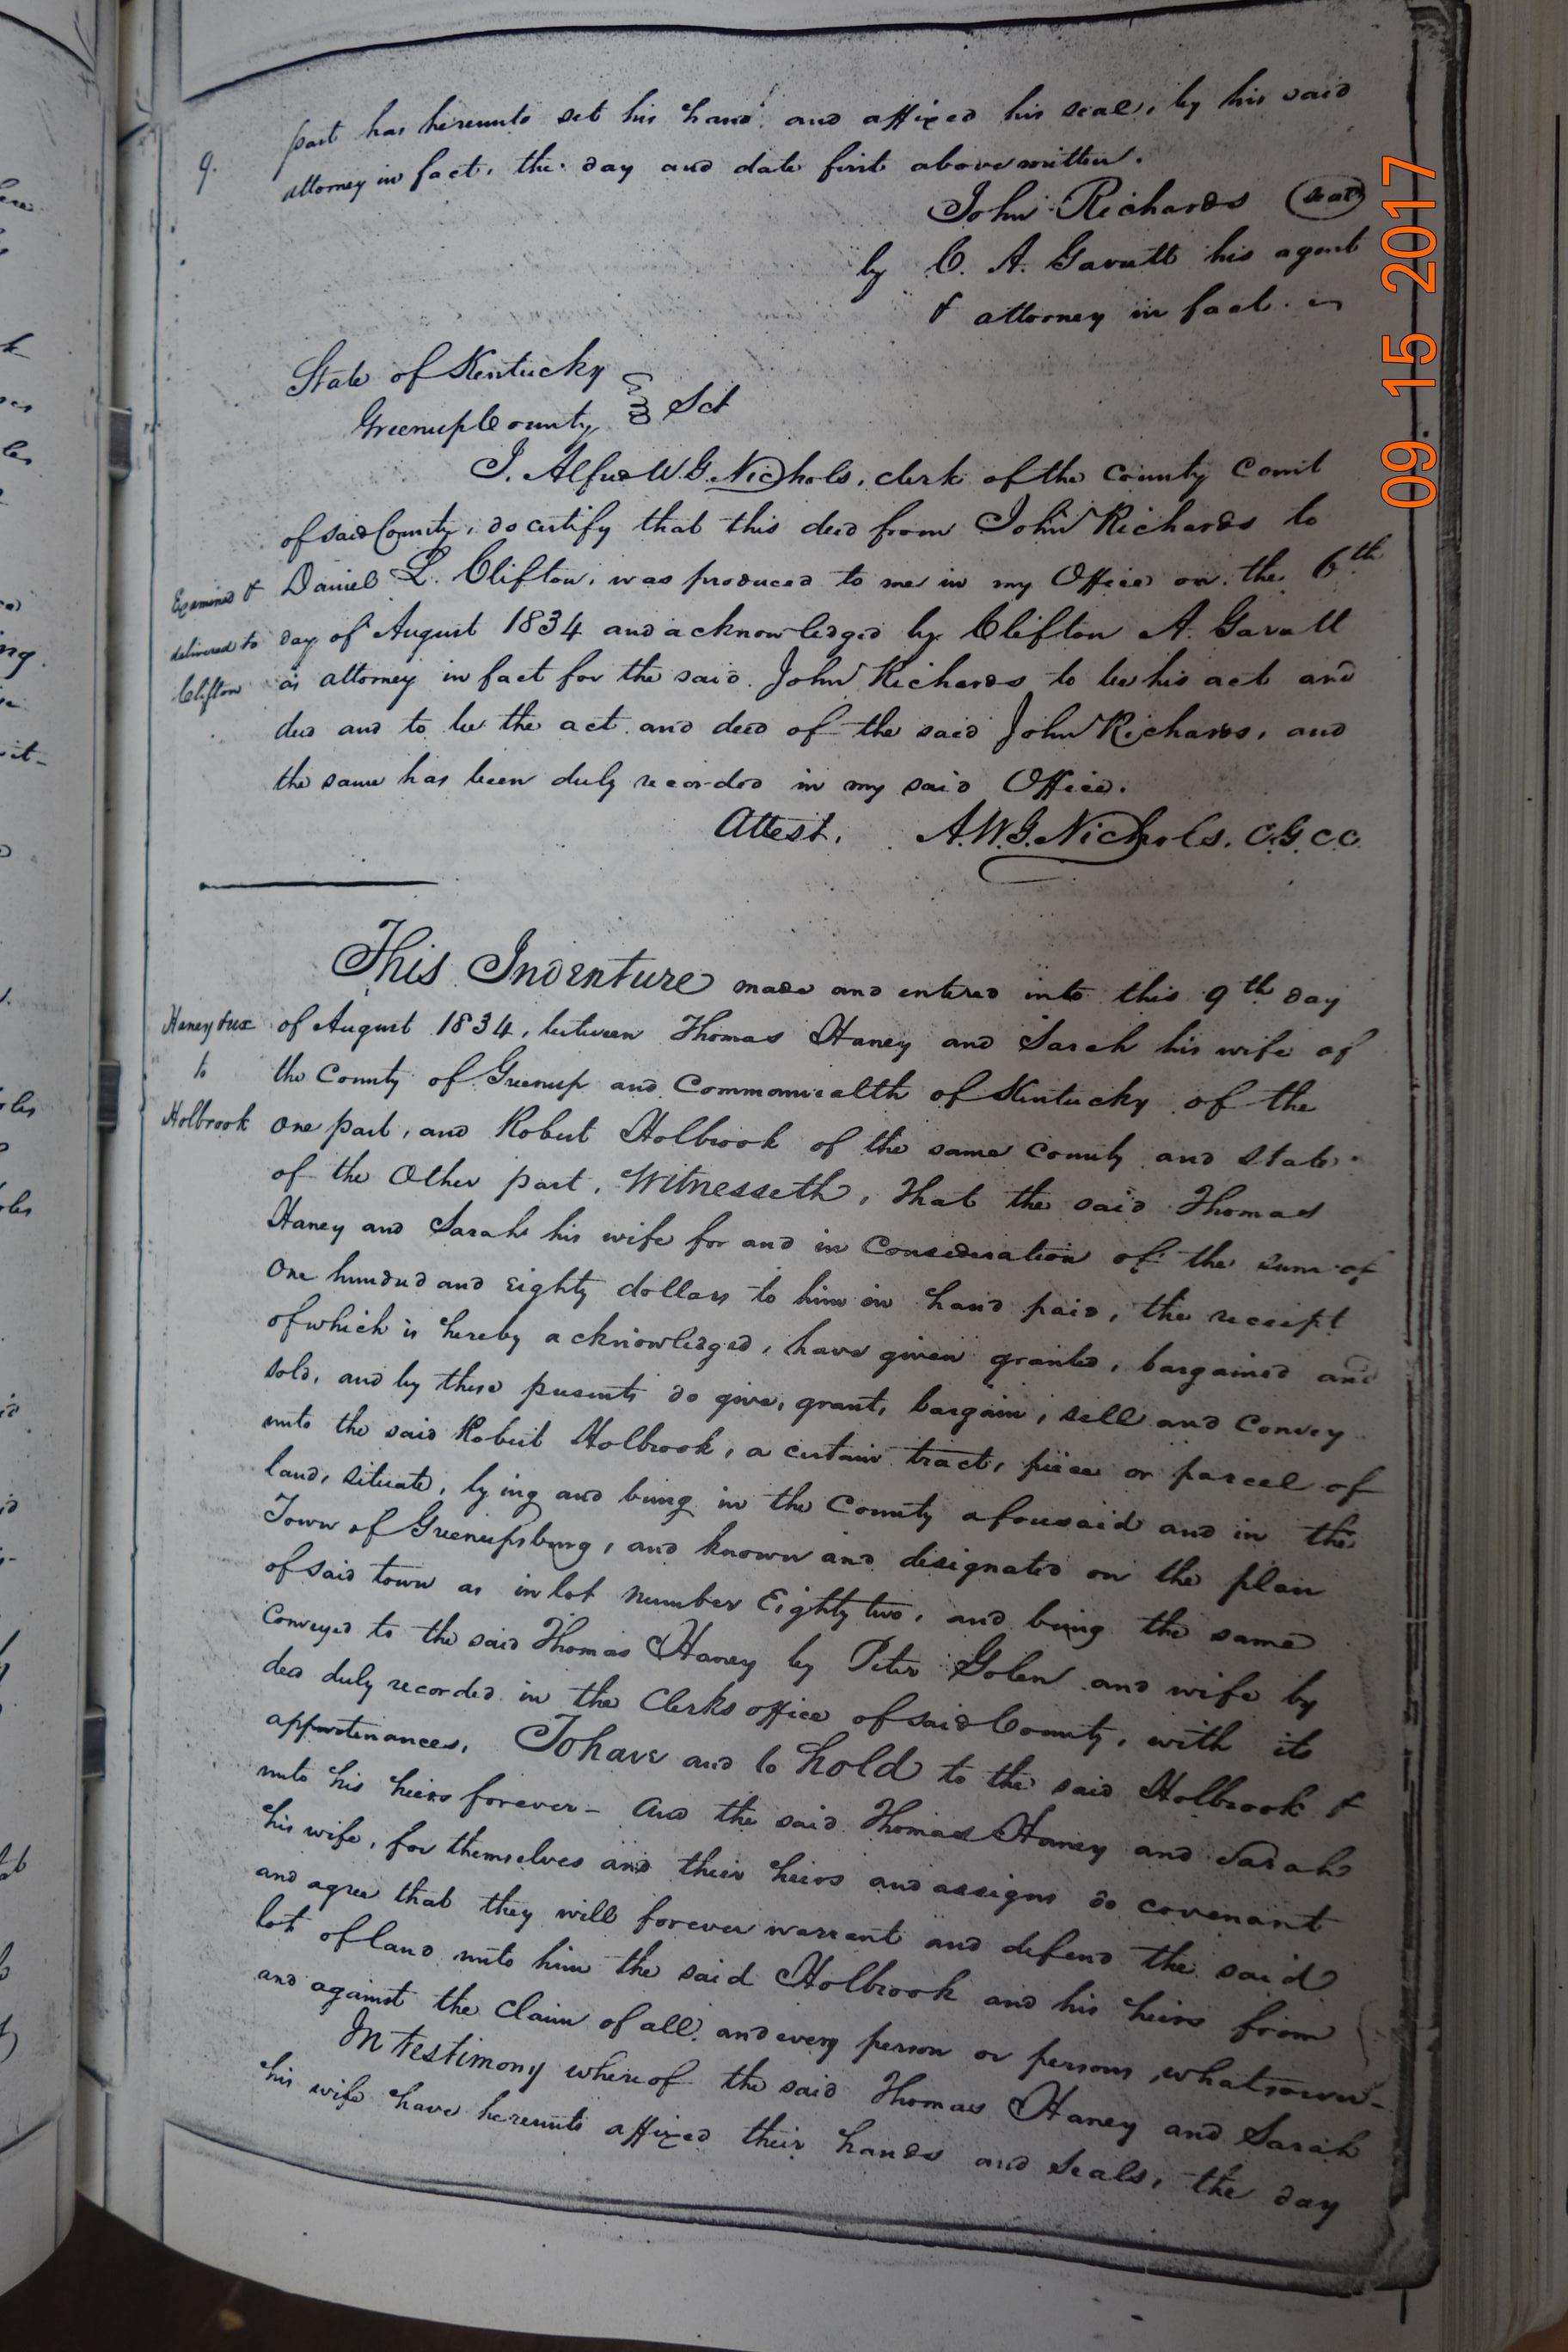 9.
part has hereunto set his hand and affixed his seal, by his said
attorney in fact, the day and date first above written.
John Richards (seal)
by C. A. Gavatt his agent
& attorney in fact.
State of Kentucky
Greenup County Sct
I. Alfred W. G. Nichols, clerk of the County Court
of said County, do certify that this deed from John Richards to
Examined & Daniel L. Clifton, was produced to me in my Office on the 6th
delivered to day of August 1834 and acknowledged by Clifton A. Gavatt
Clifton as attorney in fact for the said John Richards to be his act and
deed and to be the act and deed of the said John Richards, and
the same has been duly recorded in my said Office.
Attest. A.W.G. Nichols. C.G.C.C.
This Indenture made and entered into this 9th day
Haney & ux of August 1834, between Thomas Haney and Sarah his wife of
to the County of Greenup and Commonwealth of Kentucky of the
Holbrook One part, and Robert Holbrook of the same County and State
of the Other part, Witnesseth, That the said Thomas
Haney and Sarah his wife for and in Consideration of the sum of
One hundred and Eighty dollars to him in hand paid, the receipt
of which is hereby acknowledged, have given granted, bargained and
sold, and by these presents do give, grant, bargain, sell and Convey
unto the said Robert Holbrook, a certain tract, piece or parcel of
land, situate, lying and being in the County aforesaid and in the
Town of Greenupsburg, and known and designated on the plan
of said town as in lot number Eighty two, and being the same
Conveyed to the said Thomas Haney by Peter Golen and wife by
deed duly recorded in the Clerks office of said County, with its
appurtenances, To have and to hold to the said Holbrook &
unto his heirs forever - And the said Thomas Haney and Sarah
his wife, for themselves and their heirs and assigns do covenant
and agree that they will forever warrant and defend the said
lot of land unto him the said Holbrook and his heirs from
and against the Claim of all and every person or persons whatsoever-
In Testimony whereof the said Thomas Haney and Sarah
his wife have hereunto affixed their hands and Seals, the day
09. 15 2017